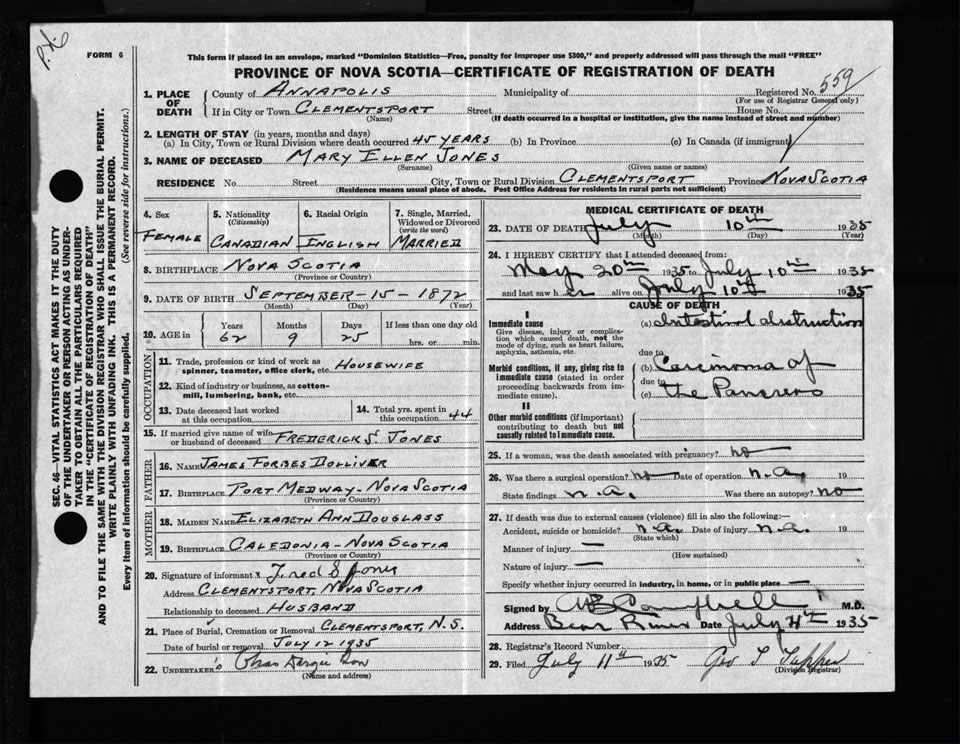 P.N.
FORM 6
This form if placed in an envelope, marked "Dominion Statistics—Free, penalty for improper use $300," and properly addressed will pass through the mail "FREE"
PROVINCE OF NOVA SCOTIA—CERTIFICATE OF REGISTRATION OF DEATH
559
1. PLACE OF DEATH
County of ANNAPOLIS Municipality of Registered No.
(For use of Registrar General only)
If in City or Town CLEMENTSPORT Street House No.
(Name) (If death occurred in a hospital or institution, give the name instead of street and number)
2. LENGTH OF STAY (in years, months and days)
(a) In City, Town or Rural Division where death occurred 45 YEARS (b) In Province (c) In Canada (if immigrant)
3. NAME OF DECEASED MARY ELLEN JONES
(Surname) (Given name or names)
RESIDENCE No. Street City, Town or Rural Division CLEMENTSPORT Province NOVA SCOTIA
(Residence means usual place of abode. Post Office Address for residents in rural parts not sufficient)
4. Sex
FEMALE
5. Nationality
(Citizenship)
CANADIAN
6. Racial Origin
ENGLISH
7. Single, Married, Widowed or Divorced
(write the word)
MARRIED
8. BIRTHPLACE NOVA SCOTIA
(Province or Country)
9. DATE OF BIRTH SEPTEMBER-15-1872
(Month) (Day) (Year)
10. AGE in
Years Months Days If less than one day old
62 9 25 hrs. or min.
OCCUPATION
11. Trade, profession or kind of work as spinner, teamster, office clerk, etc. HOUSEWIFE
12. Kind of industry or business, as cotton-mill, lumbering, bank, etc.
13. Date deceased last worked at this occupation
14. Total yrs. spent in this occupation 44
15. If married give name of wife or husband of deceased FREDERICK S. JONES
FATHER
16. NAME JAMES FORBES DOLLIVER
17. BIRTHPLACE PORT MEDWAY-NOVA SCOTIA
(Province or Country)
MOTHER
18. MAIDEN NAME ELIZABETH ANN DOUGLASS
19. BIRTHPLACE CALEDONIA-NOVA SCOTIA
(Province or Country)
20. Signature of informant x Fred S Jones
Address CLEMENTSPORT, NOVA SCOTIA
Relationship to deceased HUSBAND
21. Place of Burial, Cremation or Removal CLEMENTSPORT, N.S.
Date of burial or removal JULY 12 1935
22. UNDERTAKER Chas Dargie Son
(Name and address)
MEDICAL CERTIFICATE OF DEATH
23. DATE OF DEATH July 10th 1935
(Month) (Day) (Year)
24. I HEREBY CERTIFY that I attended deceased from:
May 20th 1935 to July 10th 1935
and last saw her alive on July 10th 1935
CAUSE OF DEATH
I
Immediate cause
Give disease, injury or complication which caused death, not the mode of dying, such as heart failure, asphyxia, asthenia, etc.
(a) Intestinal obstruction
due to
Morbid conditions, if any, giving rise to immediate cause (stated in order proceeding backwards from immediate cause).
(b) Carcinoma of
due to
(c) the Pancreas
II
Other morbid conditions (if important) contributing to death but not causally related to immediate cause.
25. If a woman, was the death associated with pregnancy? no
26. Was there a surgical operation? no Date of operation n.a. 19
State findings n.a. Was there an autopsy? no
27. If death was due to external causes (violence) fill in also the following:—
Accident, suicide or homicide? n.a. Date of injury n.a. 19
(State which)
Manner of injury —
(How sustained)
Nature of injury —
Specify whether injury occurred in industry, in home, or in public place —
Signed by Campbell M.D.
Address Bear River Date July 4th 1935
28. Registrar's Record Number
29. Filed July 11th 1935 Geo T Tupper
(Division Registrar)
SEC. 46—VITAL STATISTICS ACT MAKES IT THE DUTY
OF THE UNDERTAKER OR PERSON ACTING AS UNDER-
TAKER TO OBTAIN ALL THE PARTICULARS REQUIRED
IN THE "CERTIFICATE OF REGISTRATION OF DEATH"
AND TO FILE THE SAME WITH THE DIVISION REGISTRAR WHO SHALL ISSUE THE BURIAL PERMIT.
WRITE PLAINLY WITH UNFADING INK. THIS IS A PERMANENT RECORD.
Every item of information should be carefully supplied. (See reverse side for instructions.)